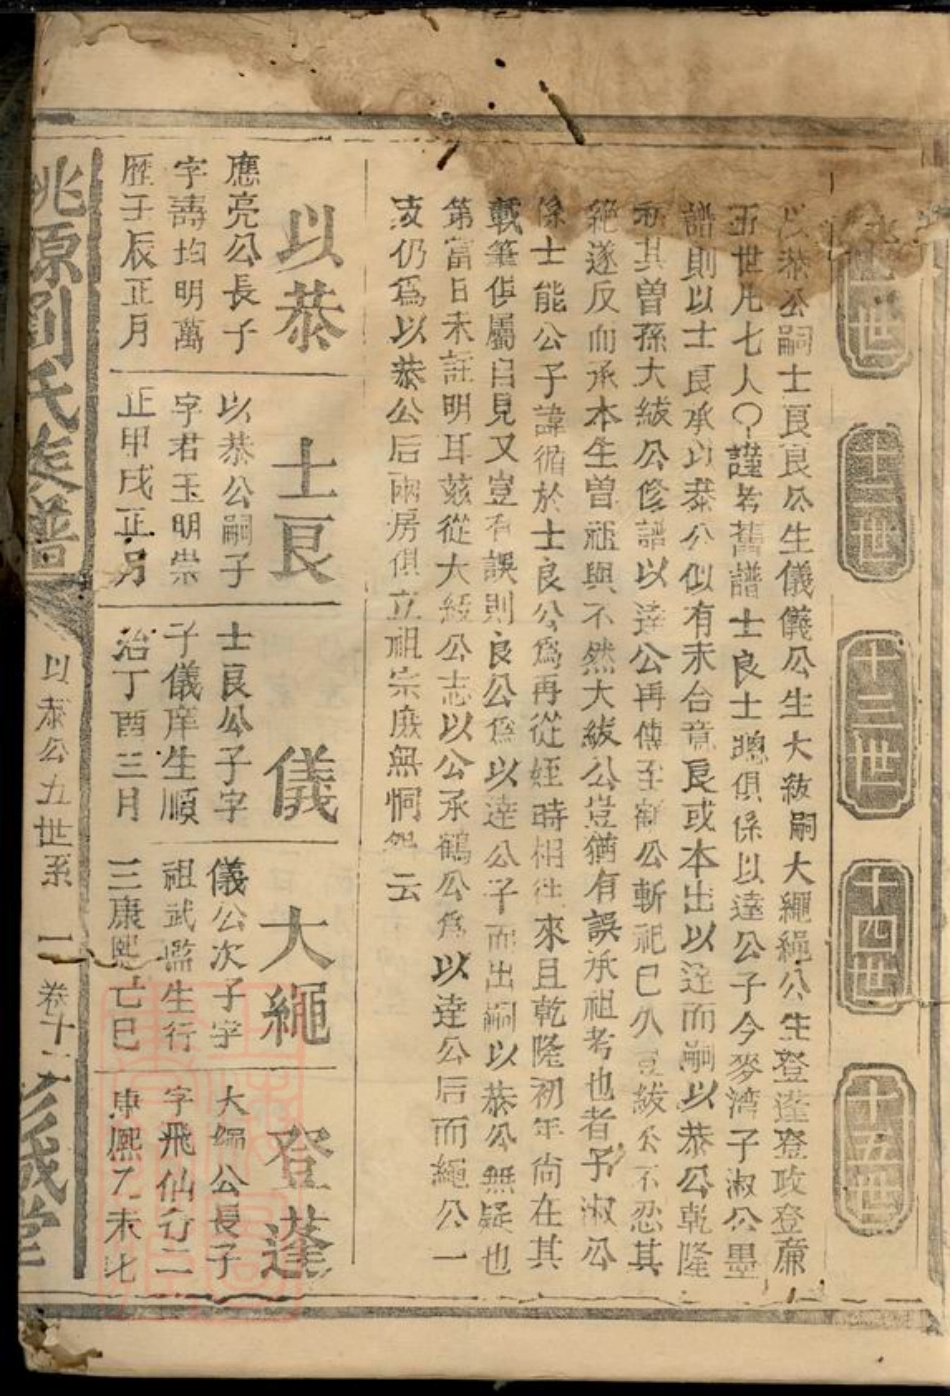 十二世
十三世
十四世
十五世
以恭公嗣士良良公生儀儀公生大紱嗣大繩繩公生登蓬登政登廉
五世凡七人〇謹考舊譜士良士聰俱係以達公子今麥湾子淑公墨
譜則以士良承以恭公似有未合竟良或本出以達而嗣以恭公乾隆
初其曾孫大紱公修譜以達公再傳至鶴公斬祀已久豈紱公不忍其
絕遂反而承本生曾祖與不然大紱公豈猶有誤承祖考也者子淑公
係士能公子諱循於士良公為再從姪時相往來且乾隆初年尚在其
載筆俱屬目見又豈有誤則良公為以達公子而出嗣以恭公無疑也
第當日未註明耳茲從大紱公志以公承鶴公為以達公后而繩公一
支仍爲以恭公后兩房俱立祖宗庶無恫怨云
以恭
應亮公長子
字壽均明萬
歷壬辰正月
士良
以恭公嗣子
字君玉明崇
正甲戌正月
儀
士良公子字
子儀庠生順
治丁酉三月
大繩
儀公次子字
祖武監生行
三康熙丁巳
登蓬
大繩公長子
字飛仙行二
康熙乙未七
桃源劉氏族譜
以恭公五世系
一
卷十一
彭城堂